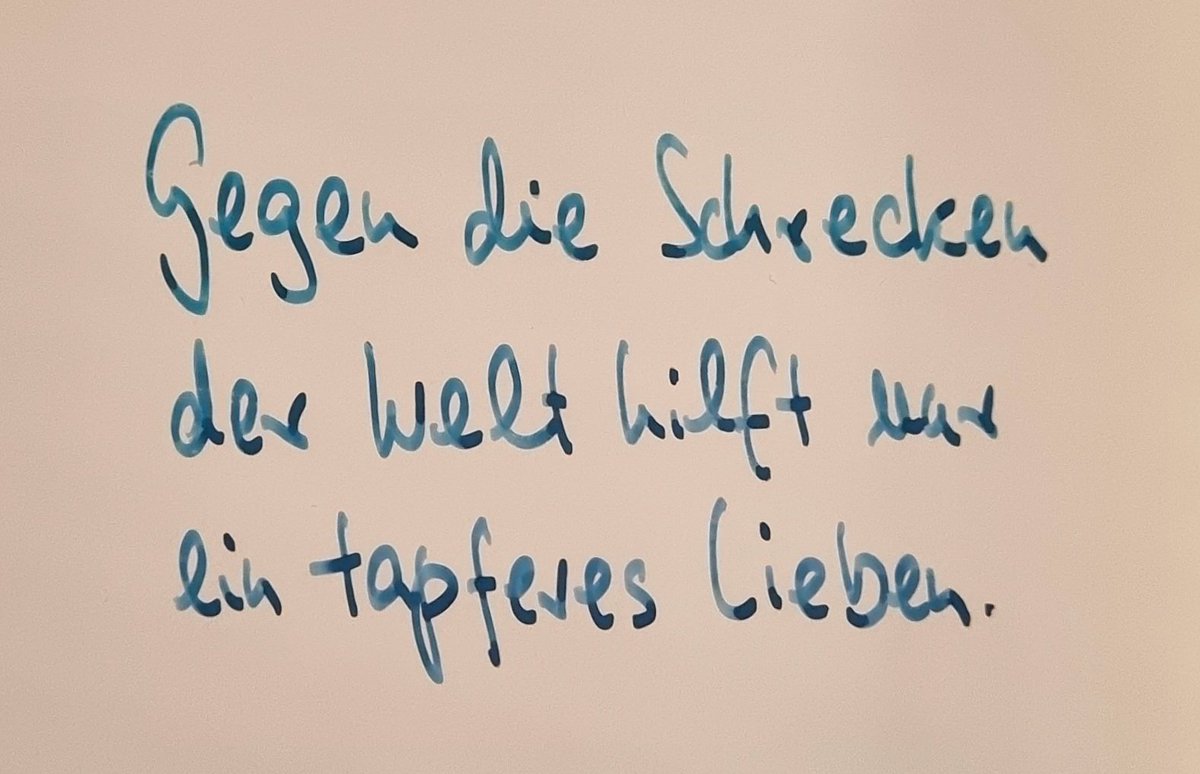 Gegen die Schrecken
der Welt hilft nur
ein tapferes Lieben.